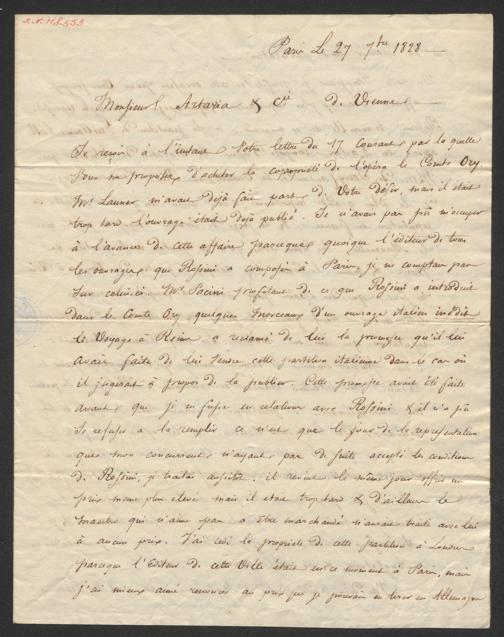 Paris Le 27 7bre 1828
Monsieurs Artaria & Cie de Vienne
Je reçois à l'instant Votre lettre du 17 courant par la quelle
Vous me proposez d'acheter la copropriété de l'opéra le Comte Ory
Mr Launer m'avait déjà fait part de Votre désir, mais il était
trop tard l'ouvrage était déjà publié. Je n'avais pas pû m'occuper
à l'avance de cette affaire parceque quoique l'éditeur de tous
les ouvrages que Rossini a composés à Paris, je ne comptais pas
Sur celui-ci. Mr Pacini profitant de ce que Rossini a introduit
dans le Comte Ory quelques morceaux d'un ouvrage italien inédit
le Voyage à Reims a réclamé de lui la promesse qu'il lui
avait faite de lui vendre cette partition italienne dans le cas où
il jugerait à propos de la publier. Cette promesse avait été faite
avant que je ne fusse en relation avec Rossini & il n'a pû
Se refuser à la remplir ce n'est que le jour de la représentation
que mon concurrent n'ayant pas de suite accepté les conditions
de Rossini, je traitai aussitôt. il revint le même jour offrir un
prix même plus élevé mais il était trop tard & d'ailleurs le
maestro qui n'aime pas à être marchandé n'aurait traité avec lui
à aucun prix. J'ai cédé la propriété de cette partition à Londres
parceque l'Editeur de cette Ville était en ce moment à Paris, mais
j'ai mieux aimé renoncer au prix que je pouvais en tirer en Allemagne